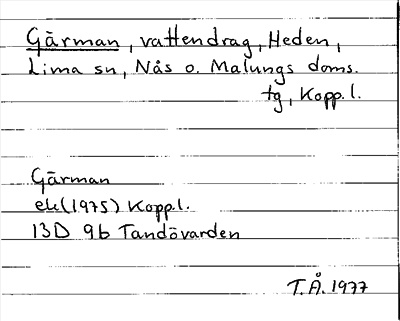 Gärman, vattendrag, Heden,
Lima sn, Nås o. Malungs doms.
tg, Kopp.l.
Gärman
ek(1975) Kopp.l.
13D 9b Tandövarden
T.Å. 1977